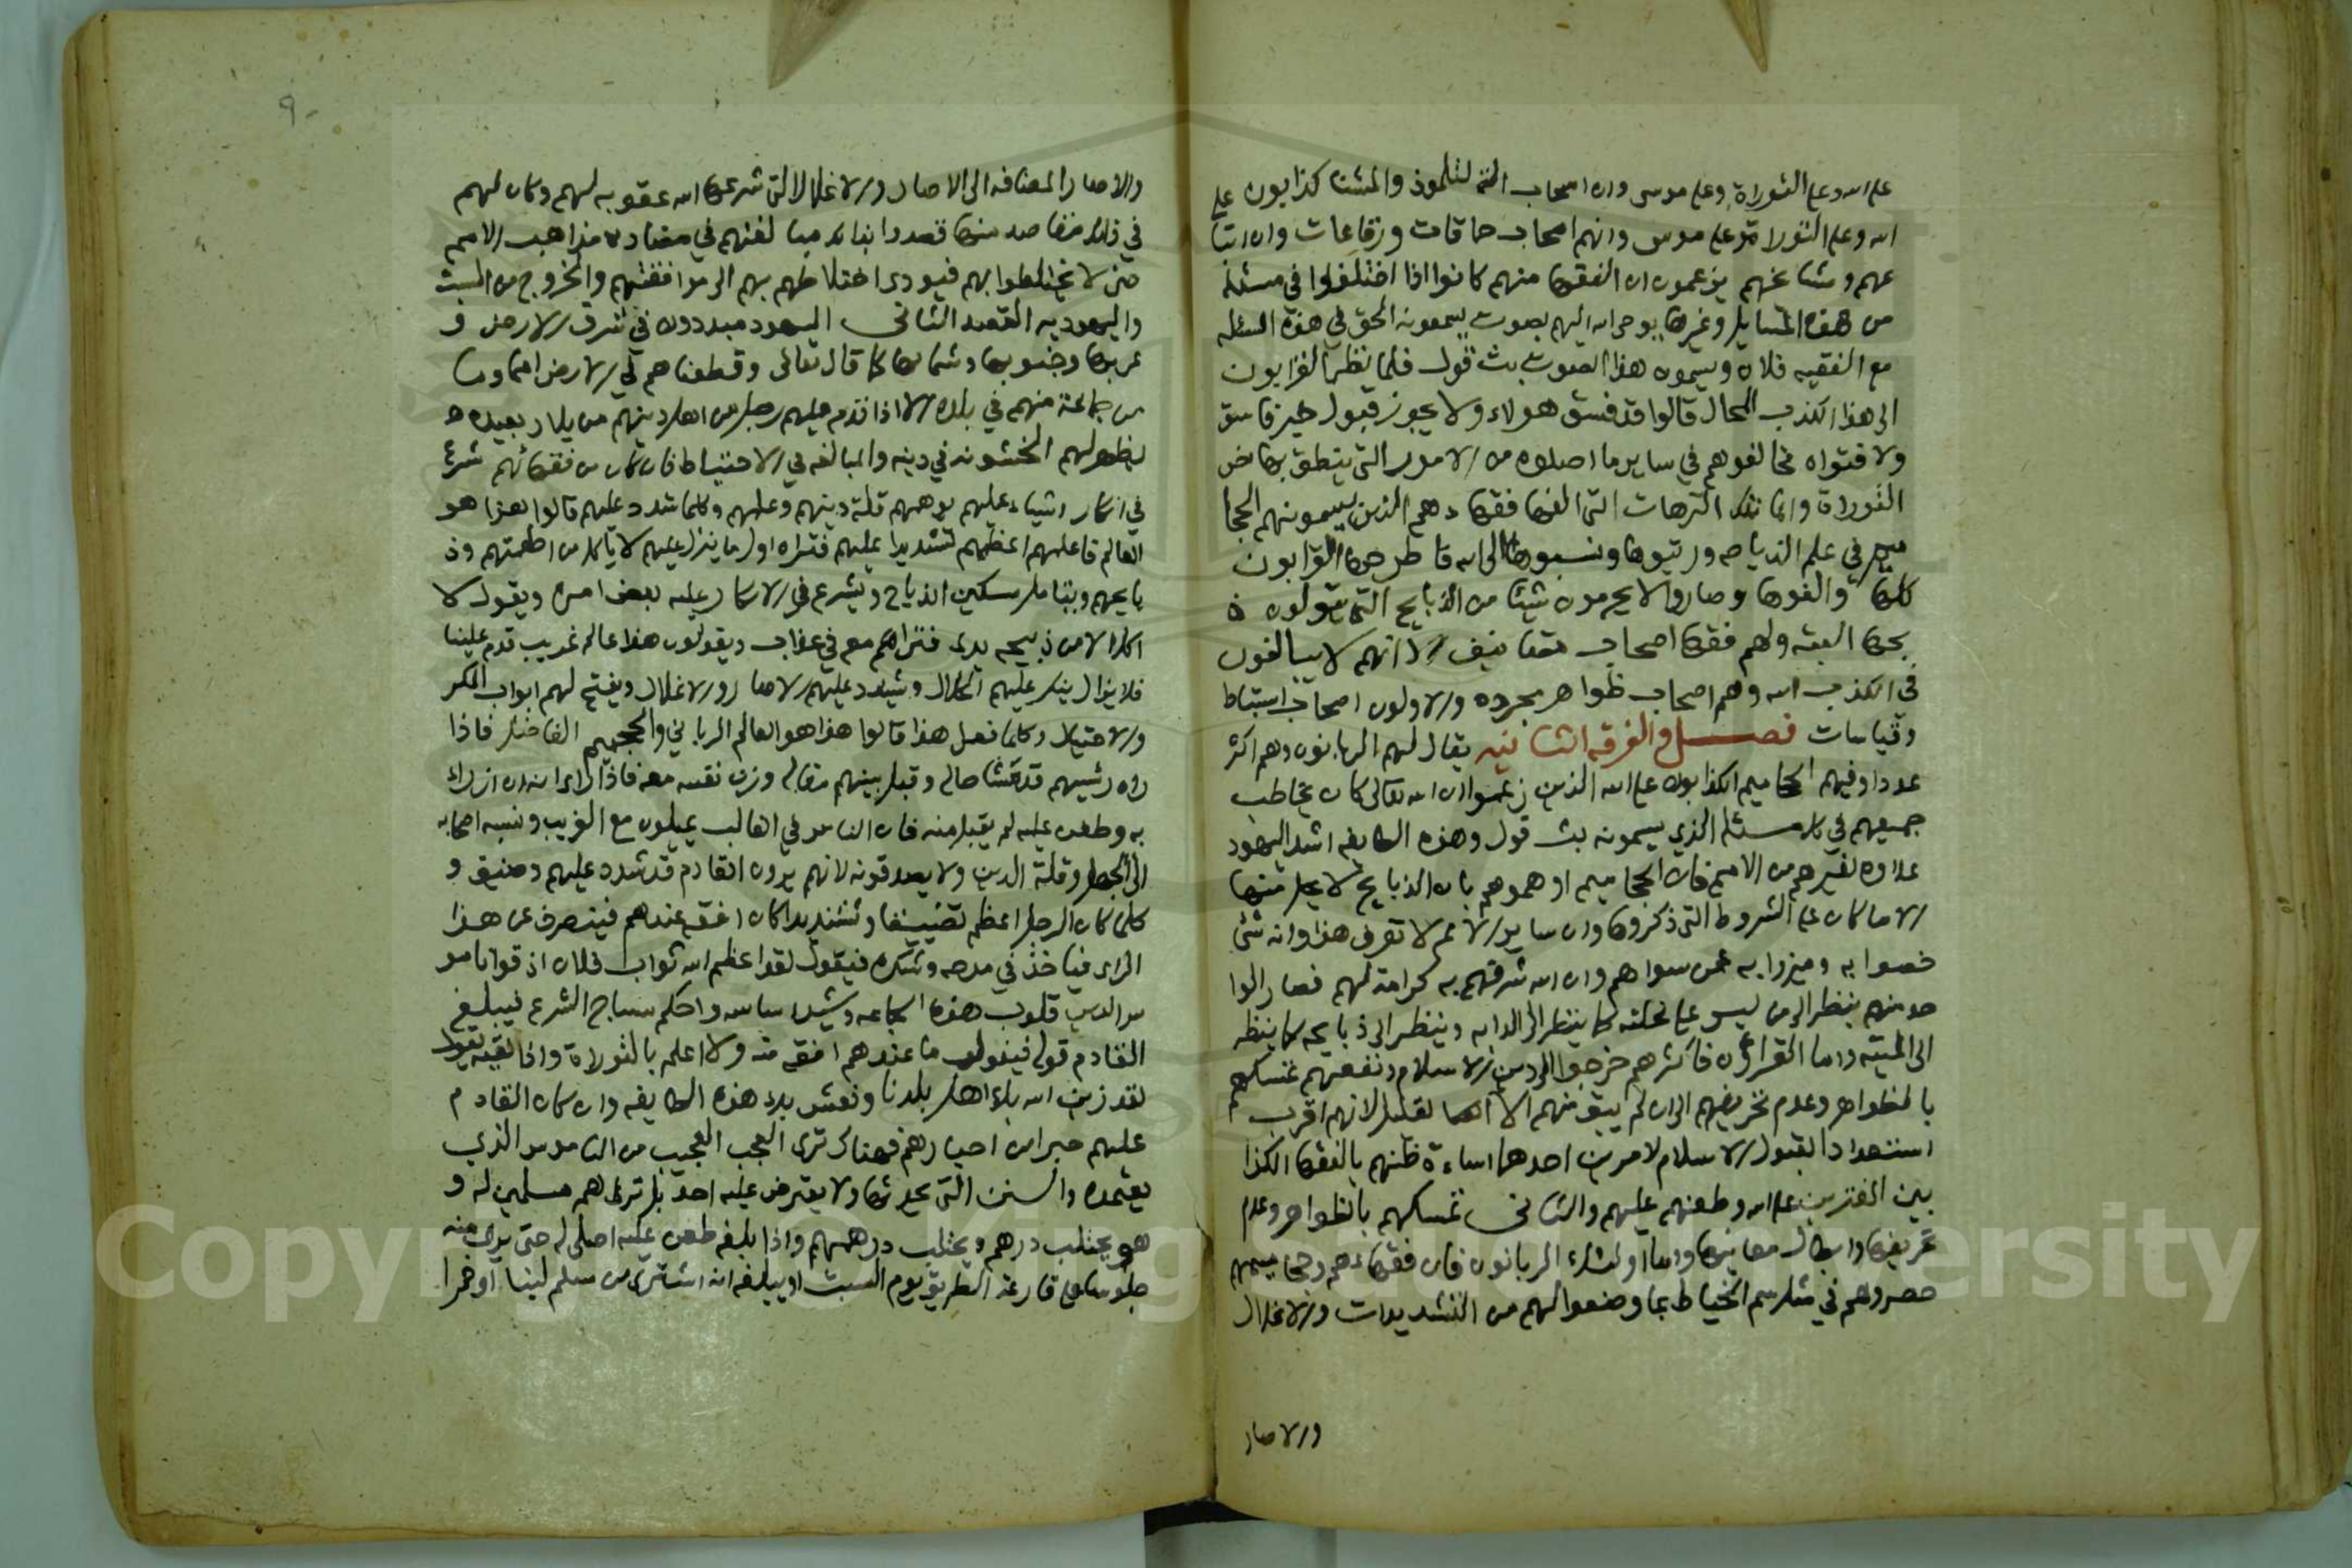 على الله وعلى التوراة وعلى موسى وان اصحاب التلموذ والمشنا كذابون على
الله وعلى التوراة وعلى موسى وانهم اصحاب حماقات ورقاعات وان اتبا
عهم ومشايخهم يزعمون ان الفقها منهم كانوا اذا اختلفوا في مسئلة
من هذه المسايل وغيرها يوحي الله اليهم بصوت يسمعونه الحق في هذه المسئله
مع الفقيه فلان ويسمون هذا الصوت بث قول فلما نظر القرايون
الى هذا الكذب المحال قالوا قد فسق هولاء ولا يجوز قبول خبر فاسق
ولا فتواه فخالفوهم في ساير ما اصلوه من الامور التي ينطق بها نص
التوراة واما تلك الترهات التي الفها فقها دهم الذين يسمونهم الحخا
ميم في علم الذباحه ورتبوها ونسبوها الى الله فاطرحها القرايون
كلها والغوها وصاروا لا يحرمون شيئا من الذبايح التي يتولون ذ
بحها البته ولهم فقها اصحاب تصانيف الا انهم لا يبالغون
في الكذب الله وهم اصحاب ظواهر مجرده والاولون اصحاب استنباط
وقياسات فصل والفرقه الثانيه يقال لهم الربانون وهم اكثر
عددا وفيهم الحخاميم الكذابون على الله الذين زعموا ان الله تعالى كان يخاطب
جميعهم في كل مسئله الذي يسمونه بث قول وهذه الطايفه اشد اليهود
عداوه لغيرهم من الامم فان الحخاميم اوهموهم بان الذبايح لا يحل منها
الا ما كان على الشروط التي ذكروها وان ساير الامم لا تعرف هذا وانه شئ
خصوا به وميزوا به عمن سواهم وان الله شرفهم به كرامة لهم فصار الوا
حد منهم ينظر الى من ليس على نحلته كما ينظر الى الدابه وينظر الى ذبايحه كما ينظر
الى الميته واما القراون فاكثرهم خرجوا الى دين الاسلام ونفعهم تمسكهم
بالظواهر وعدم تحريفهم الى ان لم يبق منهم الا القليل لانهم اقرب
استعدادا لقبول الاسلام لامرين احدهما اساءة ظنهم بالفقها الكذا
بين المفترين على الله وطعنهم عليهم والثاني تمسكهم بالظواهر وعدم
تحريفها وابطال معانيها واما اولئك الربانون فان فقهاءهم وحخاميمهم
حصروهم في مثل سم الخياط بما وضعوا لهم من التشديدات والاغلال
والاصار
والاصار المضافه الى الاصار والاغلال التي شرعها الله عقوبه لهم وكان لهم
في ذلك مقاصد منها قصدوا بذلك مبالغتهم في مضاده مذاهب الامم
حتى لا يختلطوا بهم فيودي اختلاطهم بهم الى موافقتهم والخروج من السبت
واليهوديه القصد الثاني اليهود مبددون في شرق الارض و
غربها وجنوبها وشمالها كما قال تعالى وقطعناهم في الارض امما وما
من جماعة منهم في بلده الا اذا قدم عليهم رجل من اهل دينهم من بلاد بعيده
يظهر لهم الخشونه في دينه والمبالغه في الاحتياط فان كان من فقهائهم شرع
في انكار اشياء عليهم يوهمهم قلة دينهم وعلمهم وكلما شدد عليهم قالوا هذا هو
العالم فاعلمهم اعظمهم تشديدا عليهم فتراه اول ما ينزل عليهم لا ياكل من اطعمتهم وذ
بايحهم ويتامل سكين الذباح ويشرع في الانكار عليه بعض امره ويقول لا
اكل الا من ذبيحه يدي فتراهم معه في عذاب ويقولون هذا عالم غريب قدم علينا
فلا يزال ينكر عليهم الحلال ويشدد عليهم الاصار والاغلال ويفتح لهم ابواب المكر
والاحتيال وكلما فعل هذا قالوا هذا هو العالم الرباني والحخيم الفاضل فاذا
راه رئيسهم قد تمشا حاله وقبل بينهم مقاله وزن نفسه معه فاذا راى انه ان ازرى
به وطعن عليه لم يقبل منه فان الناس في الغالب يميلون مع الغريب وينسبه اصحابه
الى الجهل وقلة الدين ولا يصدقونه لانهم يرون القادم قد شدد عليهم وضيق و
كلما كان الرجل اعظم تضييقا وتشديدا كان افقه عندهم فينصرف عن هذا
الراى فياخذ في مدحه وشكره فيقول لقد اعظم الله ثواب فلان اذ قوا ناموس
الدين قلوب هذه الجماعه وشيد اساسه واحكم سياج الشرع فيبلغ
القادم قوله فيقول ما عندهم افقه منه ولا اعلم بالتوراة واذا لقيه يقول
لقد زين الله بك اهل بلدنا ونعش بك هذه الطايفه وان كان القادم
عليهم حبرا من احبارهم فهناك ترى العجب العجيب من الناموس الذي
يعتمده والسنن التي يحدثها ولا يعترض عليه احد بل تراهم مسلمين له و
هو يجتلب درهم ويجتلب درهمهم واذا بلغه طعن عليه اصلى له حتى يرى منه
جلوسا على قارعة الطريق يوم السبت او يبلغه انه اشترى من مسلم لبنا او خمرا